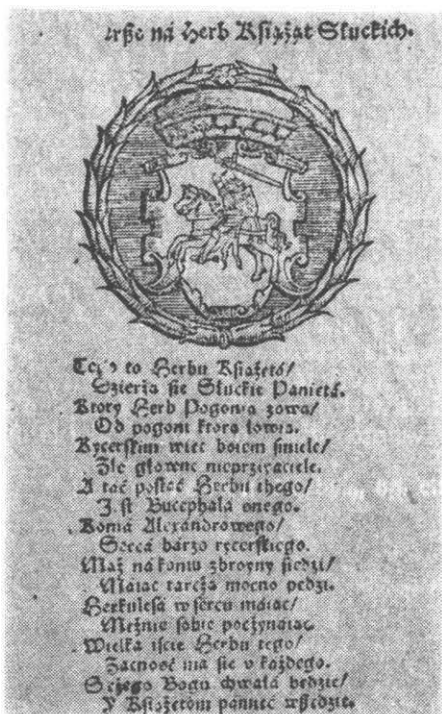 ná Herb Xiążąt Słuckich.
to Herbu Xiążętá/
Szierzą się Słuckie Paniętá.
Ktory Herb Pogonią zową/
Od pogoni ktorą łowią.
Rycerskim więc boiem śmiele/
Złe głowne nieprziyaciele.
A táć postáć Herbu thego/
Jest Bucephalá onego.
Koniá Alexándrowego/
Sercá bárzo rycerskiego.
Mąż ná koniu zbroyny siedzi/
Máiąc tarczą mocno pędzi.
Herkulesá w sercu máiąc/
Mężnie sobie poczynáiąc.
Wielka iście Herbu tego/
Zacność ma się v káżdego.
Sczego Bogu chwałá będzie/
Y Xiążętom pámięć wszędzie.